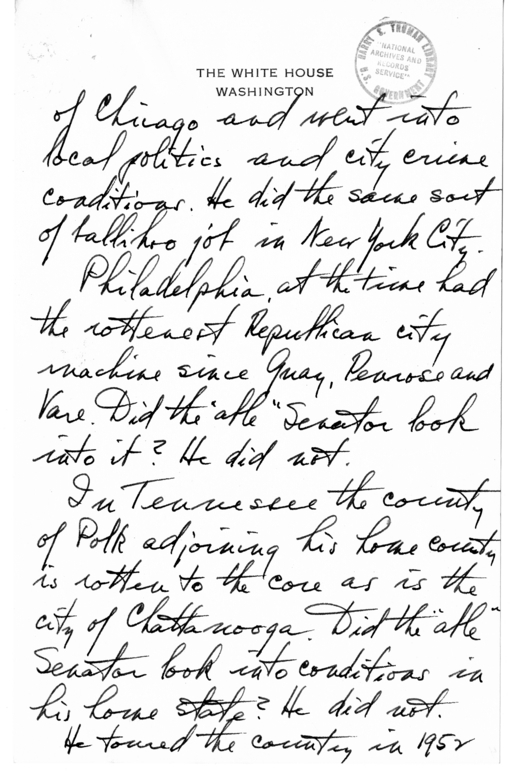 HARRY S. TRUMAN LIBRARY
"NATIONAL
ARCHIVES AND
RECORDS
SERVICE"
U.S. GOVERNMENT
THE WHITE HOUSE
WASHINGTON
of Chicago and went into
local politics and city crime
conditions. He did the same sort
of tallihro job in New York City.
Philadelphia, at the time had
the rottenest Republican city
machine since Quay, Penrose and
Vare. Did the "able" Senator look
into it? He did not.
In Tennessee the county
of Polk adjoining his home county
is rotten to the core as is the
city of Chattanooga. Did the "able"
Senator look into conditions in
his home state? He did not.
He toured the country in 1952